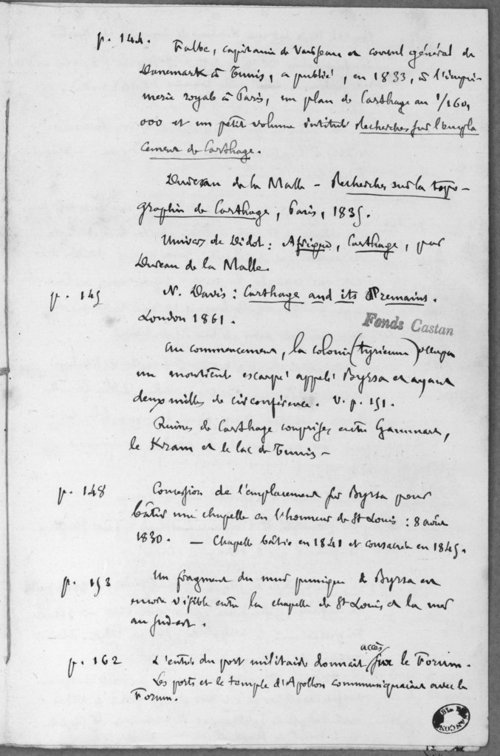 p. 144. Falbe, capitaine de vaisseau et consul général de
Danemark à Tunis, a publié, en 1833, à l'impri-
merie royale à Paris, un plan de Carthage au 1/160,
000 et un petit volume intitulé Recherches sur l'empla
cement de Carthage.
Dureau de la Malle - Recherches sur la topo-
graphie de Carthage, Paris, 1835.
Univers de Didot : Afrique, Carthage, par
Dureau de la Malle.
p. 145 N. Davis : Carthage and its remains.
London 1861.
Fonds Castan
Au commencement, la colonie (tyrienne) occupa
un monticule escarpé appelé Byrsa et ayant
deux milles de circonférence. V. p. 151.
Ruines de Carthage comprises entre Gammart,
le Kram et le lac de Tunis -
p. 148 Concession de l'emplacement sur Byrsa pour
bâtir une chapelle en l'honneur de St Louis : 8 août
1830. - Chapelle bâtie en 1841 et consacrée en 1845.
p. 153 Un fragment du mur punique de Byrsa est
encore visible entre la chapelle de St Louis et la mer
au sud-est.
p. 162 L'entrée du port militaire donnait accès sur le Forum.
Les ports et le temple d'Apollon communiquaient avec le
Forum.